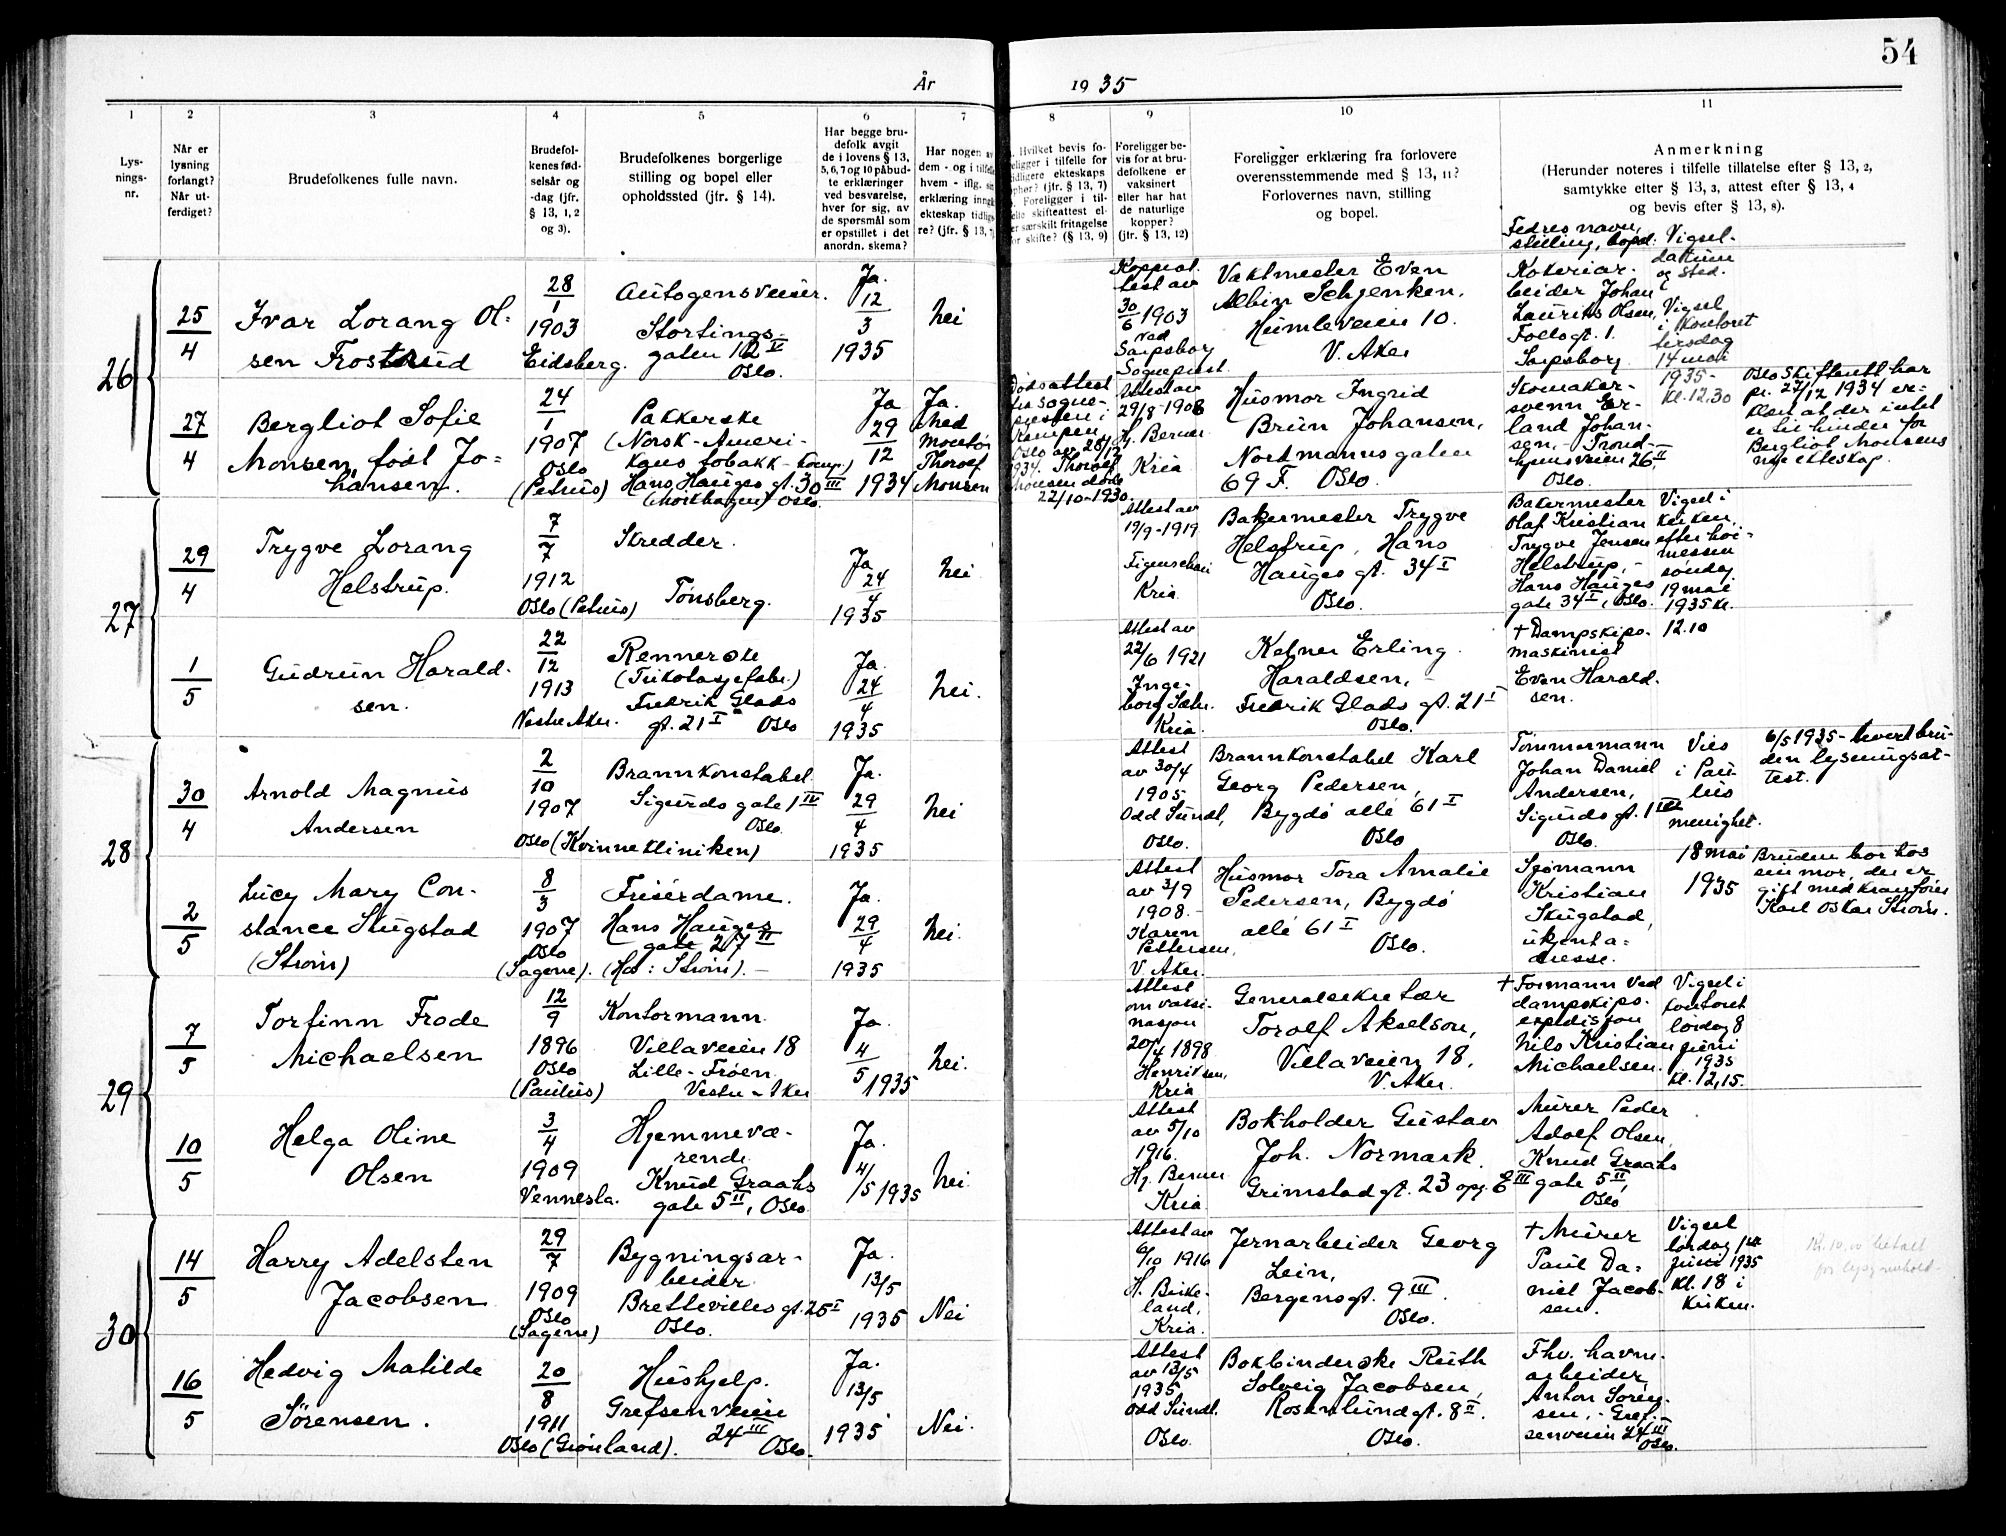 54
År 1935
1
2
3
4
5
6
7
8
9
10
11
Lys-
nings-
nr.
Når er
lysning
forlangt?
Når ut-
ferdiget?
Brudefolkenes fulle navn.
Brudefol-
kenes fød-
selsår og
-dag (jfr.
§ 13, 1, 2
og 3).
Brudefolkenes borgerlige
stilling og bopel eller
opholdssted (jfr. § 14).
Har begge bru-
defolk avgit
de i lovens § 13,
5, 6, 7 og 10 påbud-
te erklæringer
ved besvarelse,
hver for sig, av
de spørsmål som
er opstillet i det
anordn. skema?
Har nogen av
dem - og i tilfelle
hvem - iflg. sin
erklæring inngått
ekteskap tidlige-
re? (jfr. § 13, 7)
Hvilket bevis fo-
religger i tilfelle for
tidligere ekteskaps
ophør? (jfr. § 13, 7)
Foreligger i til-
felle skifteattest el-
ler særskilt fritagelse
for skifte? (§ 13, 9)
Foreligger be-
vis for at bru-
defolkene er
vaksinert
eller har hat
de naturlige
kopper?
(jfr. § 13, 12)
Foreligger erklæring fra forlovere
overensstemmende med § 13, 11?
Forlovernes navn, stilling
og bopel.
Anmerkning
(Herunder noteres i tilfelle tillatelse efter § 13, 2,
samtykke efter § 13, 3, attest efter § 13, 4
og bevis efter § 13, 8).
Fedres navn,
stilling, bopel.
Vigsel-
datum
og sted.
26
25/4
Ivar Lorang Ol-
sen Frostrud
28/1
1903
Eidsberg.
Autogensveiser.
Stortings-
gaten 12 V
Oslo.
Ja.
12/3
1935
Nei
Koppeat-
test av
30/6 1903
Ved
Sarpsborg
Sogneprest.
Vaktmester Even
Albin Schjenken,
Humleveien 10.
V. Aker
Kokeriar-
beider Johan
Laurits Olsen,
Follogt. 1.
Sarpsborg
Vigsel
i kontoret
tirsdag
14 mai
1935-
kl. 12.30
27/4
Bergliot Sofie
Monsen, født Jo-
hansen.
24/1
1907
Oslo
(Petrus)
Pakkerske
(Norsk-Ameri-
kans tobakk-komp.)
Hans Hauges gt. 30 III
Oslo.
Ja
29/12
1934
Ja.
Med
Thorolf
Monsen
Dødsattest
fra sogne-
presten i
Kampen
Oslo av 28/12
1934. Thorolf
Monsen døde
22/10-1930.
Attest av
29/8-1908
Hj. Berner
Kria
Husmor Ingrid
Bruun Johansen,
Nordmannsgaten
69 F. Oslo.
Skomaker-
svenn Er-
land Johan-
sen,- Trond-
hjemsveien 26 II
Oslo.
Oslo Skifterett har
pr. 27/12 1934 er-
klært at der intet
er til hinder for
Bergliot Monsens
nye ekteskap.
27
29/4
Trygve Lorang
Helstrup.
7/7
1912
Oslo (Petrus)
Skredder.
Tønsberg.
Ja
24/4
1935
Nei
Attest av
19/9-1919
Kria.
Bakermester Trygve
Helstrup, Hans
Hauges gt. 34 I
Oslo.
Bakermester
Olaf Kristian
Trygve Jensen
Helstrup,-
Hans Hauges
gate 34 I, Oslo.
Vigsel i
kirken,
efter høi-
messen
søndag
19 mai
1935 kl.
12.10
1/5
Gudrun Harald-
sen.
22/12
1913
Vestre Aker.
Rennerske
(Trikotasjefabr.)
Fredrik Glads
gt. 21 I Oslo
Ja.
24/4
1935
Nei.
Attest av
22/6 1921
Inge-
borg Sæter.
Kria.
Kelner Erling
Haraldsen,-
Fredrik Glads gt. 21 I
Oslo.
+ Dampskips-
maskinist
Even Harald-
sen.
28
30/4
Arnold Magnus
Andersen
2/10
1907
Oslo (Kvinneklinikken)
Brannkonstabel
Sigurds gate 1 IV
Oslo.
Ja.
29/4
1935
Nei
Attest
av 30/4
1905-
Odd Sundt,
Oslo.
Brannkonstabel Karl
Georg Pedersen,
Bygdø allé 61 I
Oslo
Tømmermann
Johan Daniel
Andersen,
Sigurds gt. 1 III
Oslo.
Vies
i Pau-
lus
menighet.
18 mai
1935
6/5 1935- levert bru-
den lysningsat-
test.
2/5
Lucy Mary Con-
stance Skugstad
(Strøm)
8/3
1907
Oslo
(Sagene).
Frisérdame.
Hans Hauges
gate 27 II
(Hos: Strøm).-
Ja.
29/4
1935
Nei.
Attest
av 3/9
1908.-
Karen
Pettersen,
V. Aker.
Husmor Tora Amalie
Pedersen, Bygdø
allé 61 I
Oslo.
Sjømann
Kristian
Skugstad,
ukjent a-
dresse.
Bruden bor hos
sin mor, der er
gift med kranfører
Karl Oskar Strøm.
29
7/5
Torfinn Frode
Michaelsen
12/9
1896
Oslo
(Paulus)
Kontormann.
Villaveien 18
Lille-Frøen.
Vestre-Aker
Ja
4/5 1935
Nei.
Attest
om vaksi-
nasjon
20/4 1898
Henriksen,
Kria
Generalsekretær
Torolf Akselson,
Villaveien 18,
V. Aker.
+ Formann ved
dampskips-
expedisjon
Nils Kristian
Michaelsen.
Vigsel i
kontoret
lørdag 8
juni
1935
kl. 12,15.
10/5
Helga Oline
Olsen
3/4
1909
Vennesla.
Hjemmevæ-
rende
Knud Graahs
gate 5 II, Oslo
Ja.
4/5 1935
Nei.
Attest
av 5/10
1916.
Hj. Berner
Kria
Bokholder Gustav
Joh. Normark
Grimstad gt. 23 opg. E III
Murer Peder
Adolf Olsen,
Knud Graahs
gate 5 II,
Oslo
30
14/5
Harry Adelsten
Jacobsen
29/7
1909
Oslo
(Sagene)
Bygningsar-
beider
Brettevilles gt. 25 I
Oslo.
Ja.
13/5
1935
Nei
Attest av
6/10 1916
H. Birke-
land,
Kria.
Jernarbeider Georg
Lein,
Bergensgt. 9 III.
Oslo.
+ Murer
Paul Da-
niel Jacob-
sen.
Vigsel
lørdag 1ste
juni 1935
kl. 18 i
kirken.
Kr. 10.00 betalt
for
16/5
Hedvig Matilde
Sørensen.
20/8
1911
Oslo (Grønland).
Hushjelp.
Grefsenveien
24 III
Oslo.
Ja.
13/5
1935
Nei.
Attest
av 13/5
1935
Odd Sundt.
Oslo.
Bokbinderske Ruth
Solveig Jacobsen,
Rosenlundgt. 8 II.
Oslo.
Fhv. havne-
arbeider
Anton Søren-
sen,- Gref-
senveien 24 III
Oslo.